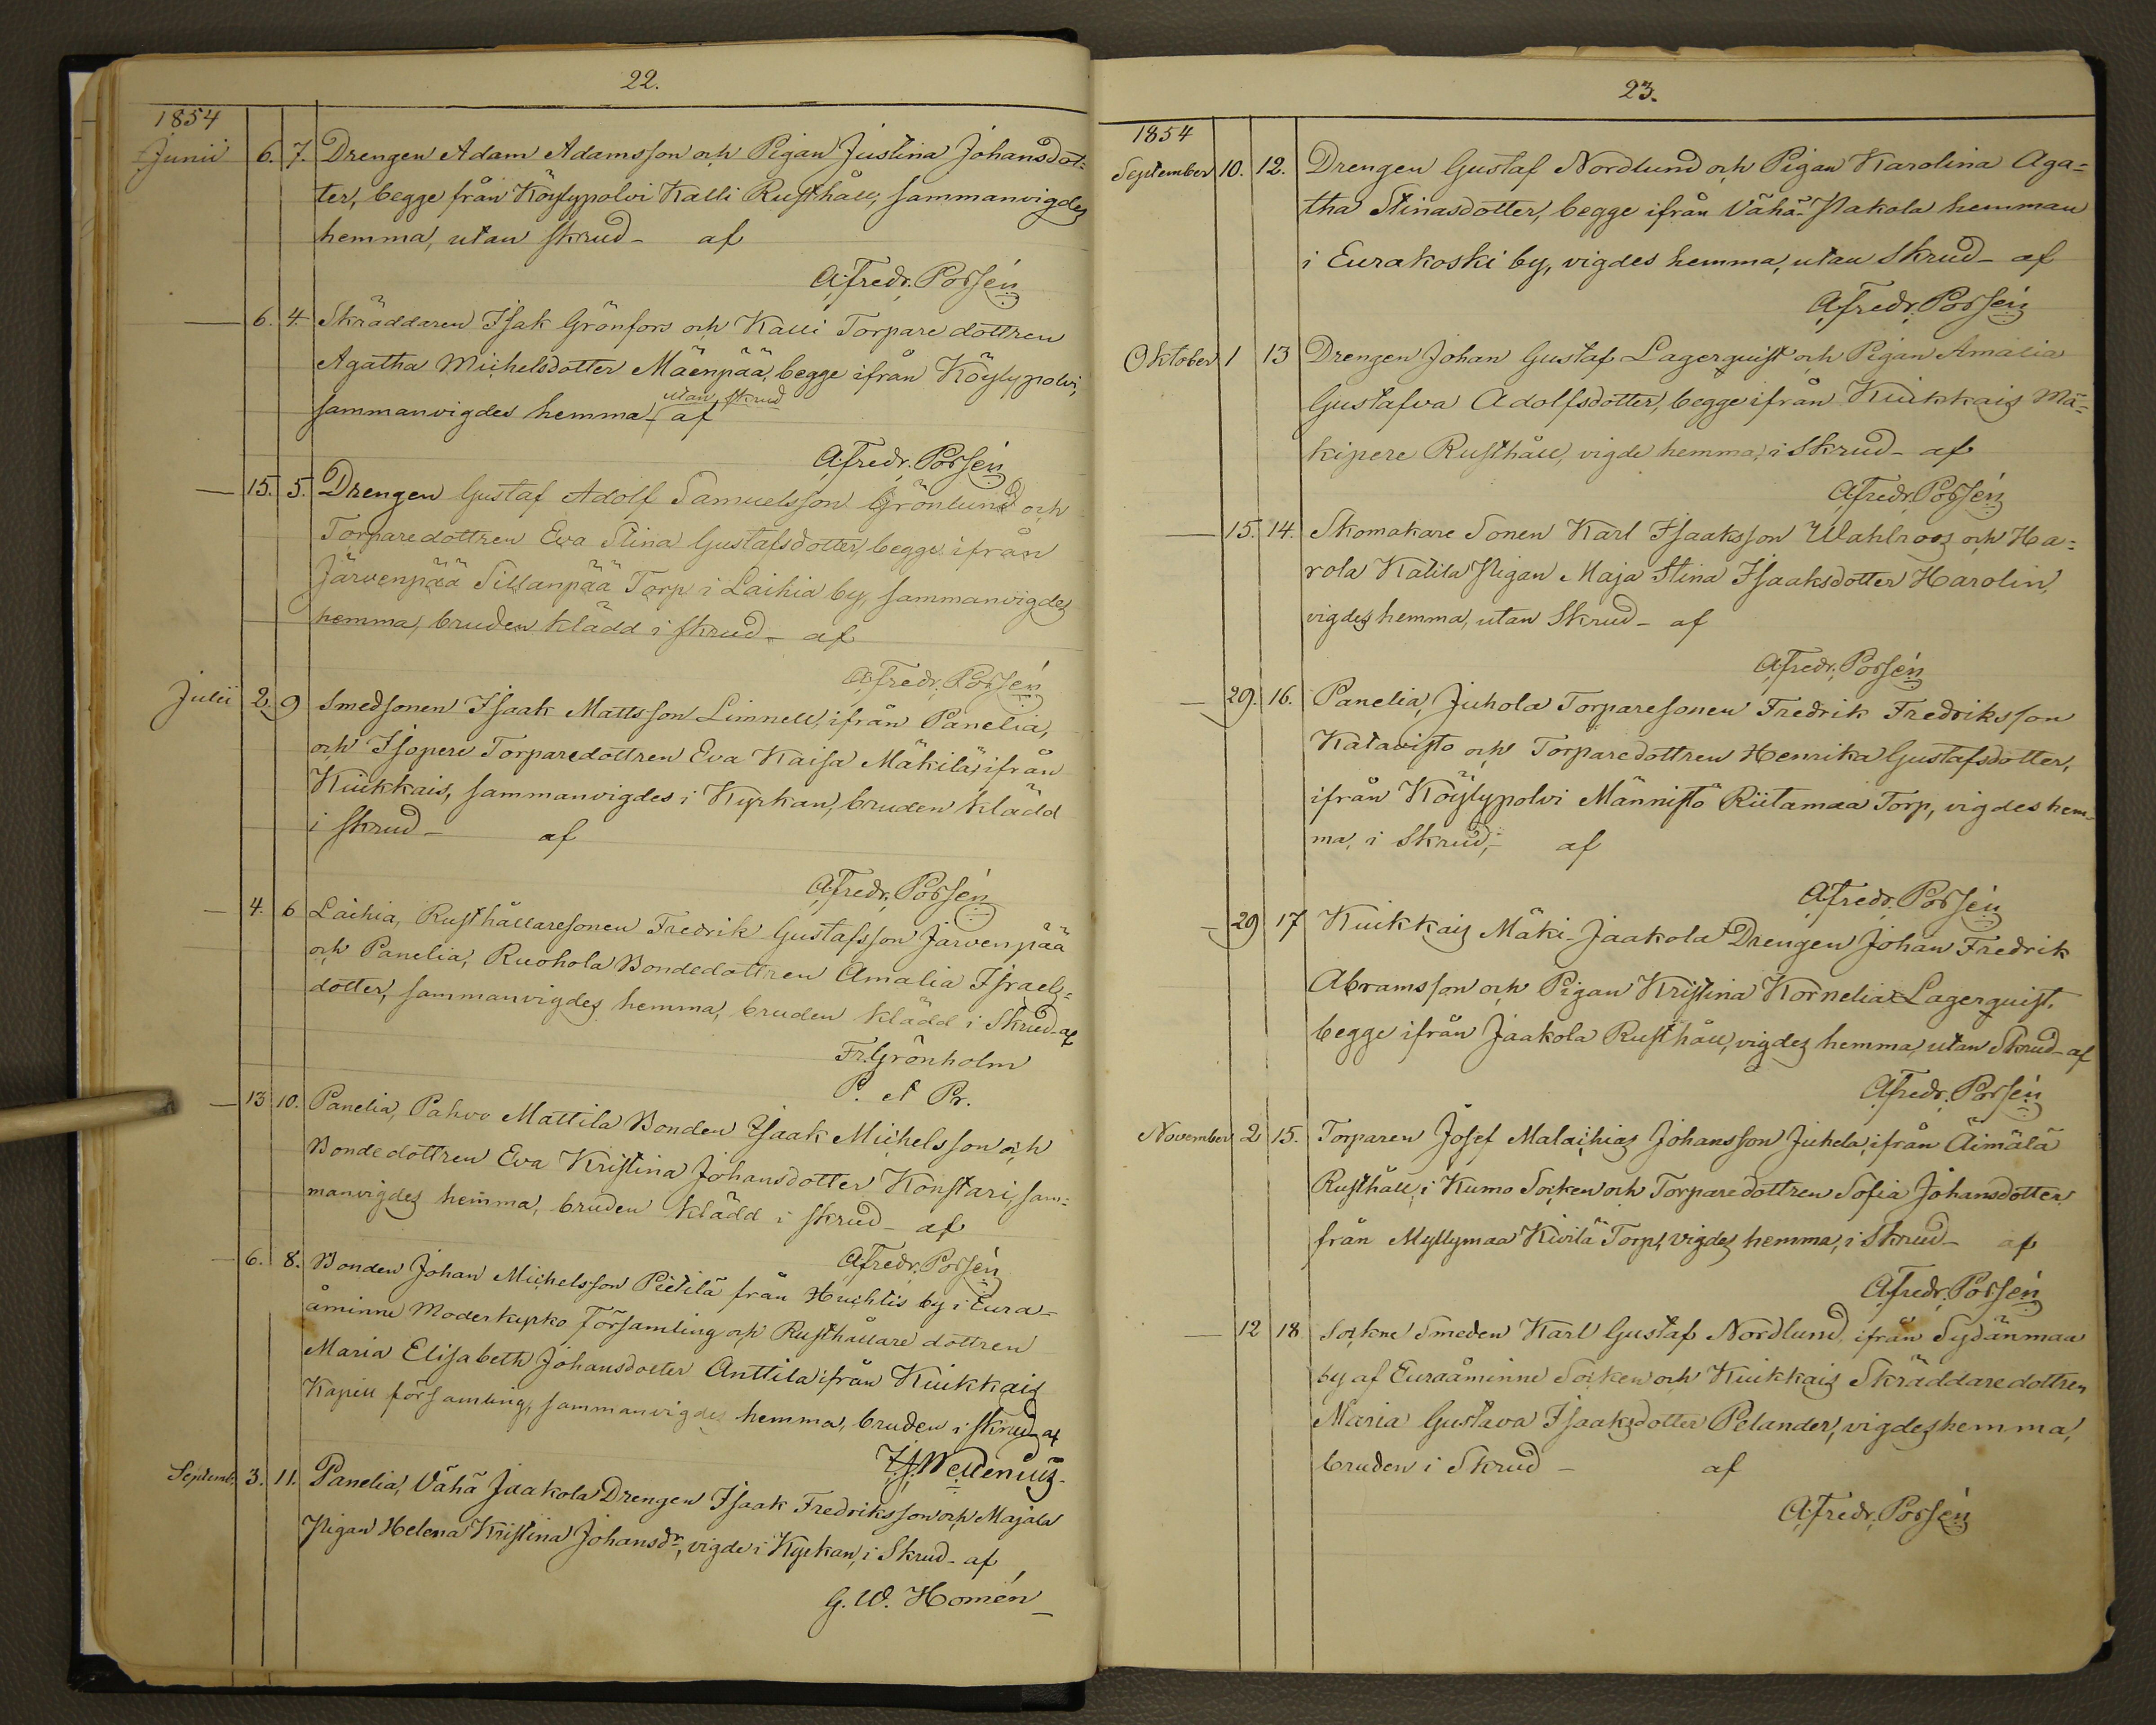 22.
1854
Junii 6. 7. Drengen Adam Adamsson och Pigan Justina Johansdot=
ter, begge från Köylypolvi Kalli Rusthåll, sammanvigdes
hemma, utan skrud - af
A. Fredr. Porsén
— 6. 4. Skräddaren Isak Grönfors och Kalli Torpare dottren
Agatha Michelsdotter Mäenpää, begge ifrån Köylypolvi,
utan skrud
sammanvigdes hemma - af
A. Fredr. Porsén
— 15. 5. Drengen Gustaf Adolf Samuelsson Grönlund och
Torparedottren Eva Stina Gustafsdotter, begge ifrån
Järvenpää Sillanpää Torp i Laihia by, sammanvigdes
hemma, bruden klädd i skrud - af
A. Fredr. Porsén
Julii 2. 9 Smedsonen Isaak Mattsson Limnell, ifrån Panelia,
och Isopere Torparedottren Eva Kaisa Mäkilä, ifrån
Kiukkais, sammanvigdes i Kyrkan, bruden klädd
i skrud - af
A. Fredr. Porsén
— 4. 6 Laihia, Rusthållaresonen Fredrik Gustafsson Järvenpää
och Panelia, Ruohola Bondedottren Amalia Israels=
dotter, sammanvigdes hemma, bruden klädd i Skrud - af
Fr. Grönholm
P. et Pr.
— 13 10. Panelia, Pahvo Mattila Bonden Isaak Michelsson och
Bondedottren Eva Kristina Johansdotter Konstari, sam=
manvigdes hemma, bruden klädd i skrud - af
A. Fredr. Porsén
— 6. 8. Bonden Johan Michelsson Pietilä från Huchtis by i Eura=
åminne Moderkyrko Församling och Rusthållare dottren
Maria Elisabeth Johansdotter Anttila ifrån Kiukkais
Kapell församling, sammanvigdes hemma, bruden i skrud - af
Wellenius.
Septemb. 3. 11. Panelia, Vähä Jaakola Drengen Isaak Fredriksson och Majala
Pigan Helena Kristina Johansdr, vigde i Kyrkan, i Skrud - af
G. W. Homén
23.
1854
September 10. 12. Drengen Gustaf Nordlund och Pigan Karolina Aga=
tha Stinasdotter, begge ifrån Vähä- hemman
i Eurakoski by, vigdes hemma, utan skrud - af
A. Fredr. Porsén
Oktober 1 13 Drengen Johan Gustaf Lagerquist och Pigan Amalia
Gustafva Adolfsdotter, begge ifrån Kiukkais Mä=
kipere Rusthåll, vigde hemma, i skrud - af
A. Fredr. Porsén
— 15. 14. Skomakare Sonen Karl Isaaksson Wahlroos och Ha=
rola Katila Pigan Maja Stina Isaaksdotter Harolin,
vigdes hemma, utan Skrud - af
A. Fredr. Porsén
— 29. 16. Panelia, Juhola Torparesonen Fredrik Fredriksson
Katavisto och Torparedottren Henrika Gustafsdotter,
ifrån Köylypolvi Männistö Riitamaa Torp, vigdes hem=
ma, i Skrud, - af
A. Fredr. Porsén
— 29 17 Kiukkais Mäki-Jaakola Drengen Johan Fredrik
Abramsson och Pigan Kristina Kornelia Lagerquist,
begge ifrån Jaakola Rusthåll, vigdes hemma, utan Skrud - af
A. Fredr. Porsén
November 2 15. Torparen Josef Malachias Johansson Juhela, ifrån Äimälä
Rusthåll, i Kumo Socken och Torparedottren Sofia Johansdotter
från Myllymaa Kivilä Torp, vigdes hemma, i Skrud - af
A. Fredr. Porsén
— 12 18 Sockne Smeden Karl Gustaf Nordlund ifrån Sydänmaa
by af Euraåminne Socken och Kiukkais Skräddaredottren
Maria Gustava Isaaksdotter Pelander, vigdes hemma,
bruden i Skrud - af
A. Fredr. Porsén